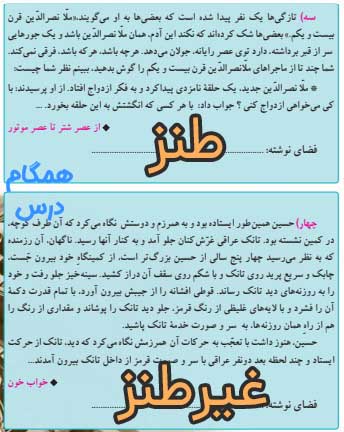 سه) تازگی‌ها یک نفر پیدا شده است که بعضی‌ها به او می‌گویند،«ملّا نصرالدّین قرن
بیست و یکم.» بعضی‌ها شک کرده‌اند که نکند این آدم، همان ملّا نصرالدّین باشد و یک جورهایی
سر از قبر برداشته، دارد توی عصر رایانه، جولان می‌دهد. هرچه باشد، هرکه باشد، فرقی نمی‌کند.
شما چند تا از ماجراهای ملّانصرالدّین قرن بیست و یکم را گوش بدهید، ببینم نظر شما چیست؛
* ملّا نصرالدّین جدید، یک حلقهٔ نامزدی پیدا کرد و به فکر ازدواج افتاد. از او پرسیدند؛ با
کی می‌خواهی ازدواج کنی ؟ جواب داد؛ با هر کسی که انگشتش به این حلقه بخورد. ...
◆ از عصر شتر تا عصر موتور
فضای نوشته: ....................
طنز
همگام
درس
چهار) حسین همین‌طور ایستاده بود و به همرزم و دوستش نگاه می‌کرد که آن طرف کوچه،
در کمین نشسته بود. تانک عراقی غرّش‌کنان جلو آمد و به کنار آنها رسید. ناگهان، آن رزمنده
که به نظر می‌رسید چهار پنج سالی از حسین بزرگ‌تر است، از کمینگاه خود بیرون جَست،
چابک و سریع پرید روی تانک و با شکم روی سقف آن دراز کشید. سینه‌خیز جلو رفت و خود
را به روزنه‌های دید تانک رساند. قوطی افشانه را از جیبش بیرون آورد، با تمام قدرت دکمهٔ
آن را فشرد و با لایه‌های غلیظی از رنگ قرمز، جلو دید تانک را پوشاند و مقداری از رنگ را
هم از راه همان روزنه‌ها، به سر و صورت خدمهٔ تانک پاشید.
حسین، هنوز داشت با تعجّب به حرکات آن همرزمش نگاه می‌کرد که دید، تانک از حرکت
ایستاد و چند لحظه بعد دونفر عراقی با سر و صورت قرمز از داخل تانک بیرون آمدند...
◆ خواب خون
فضای نوشته: ....................
غیرطنز